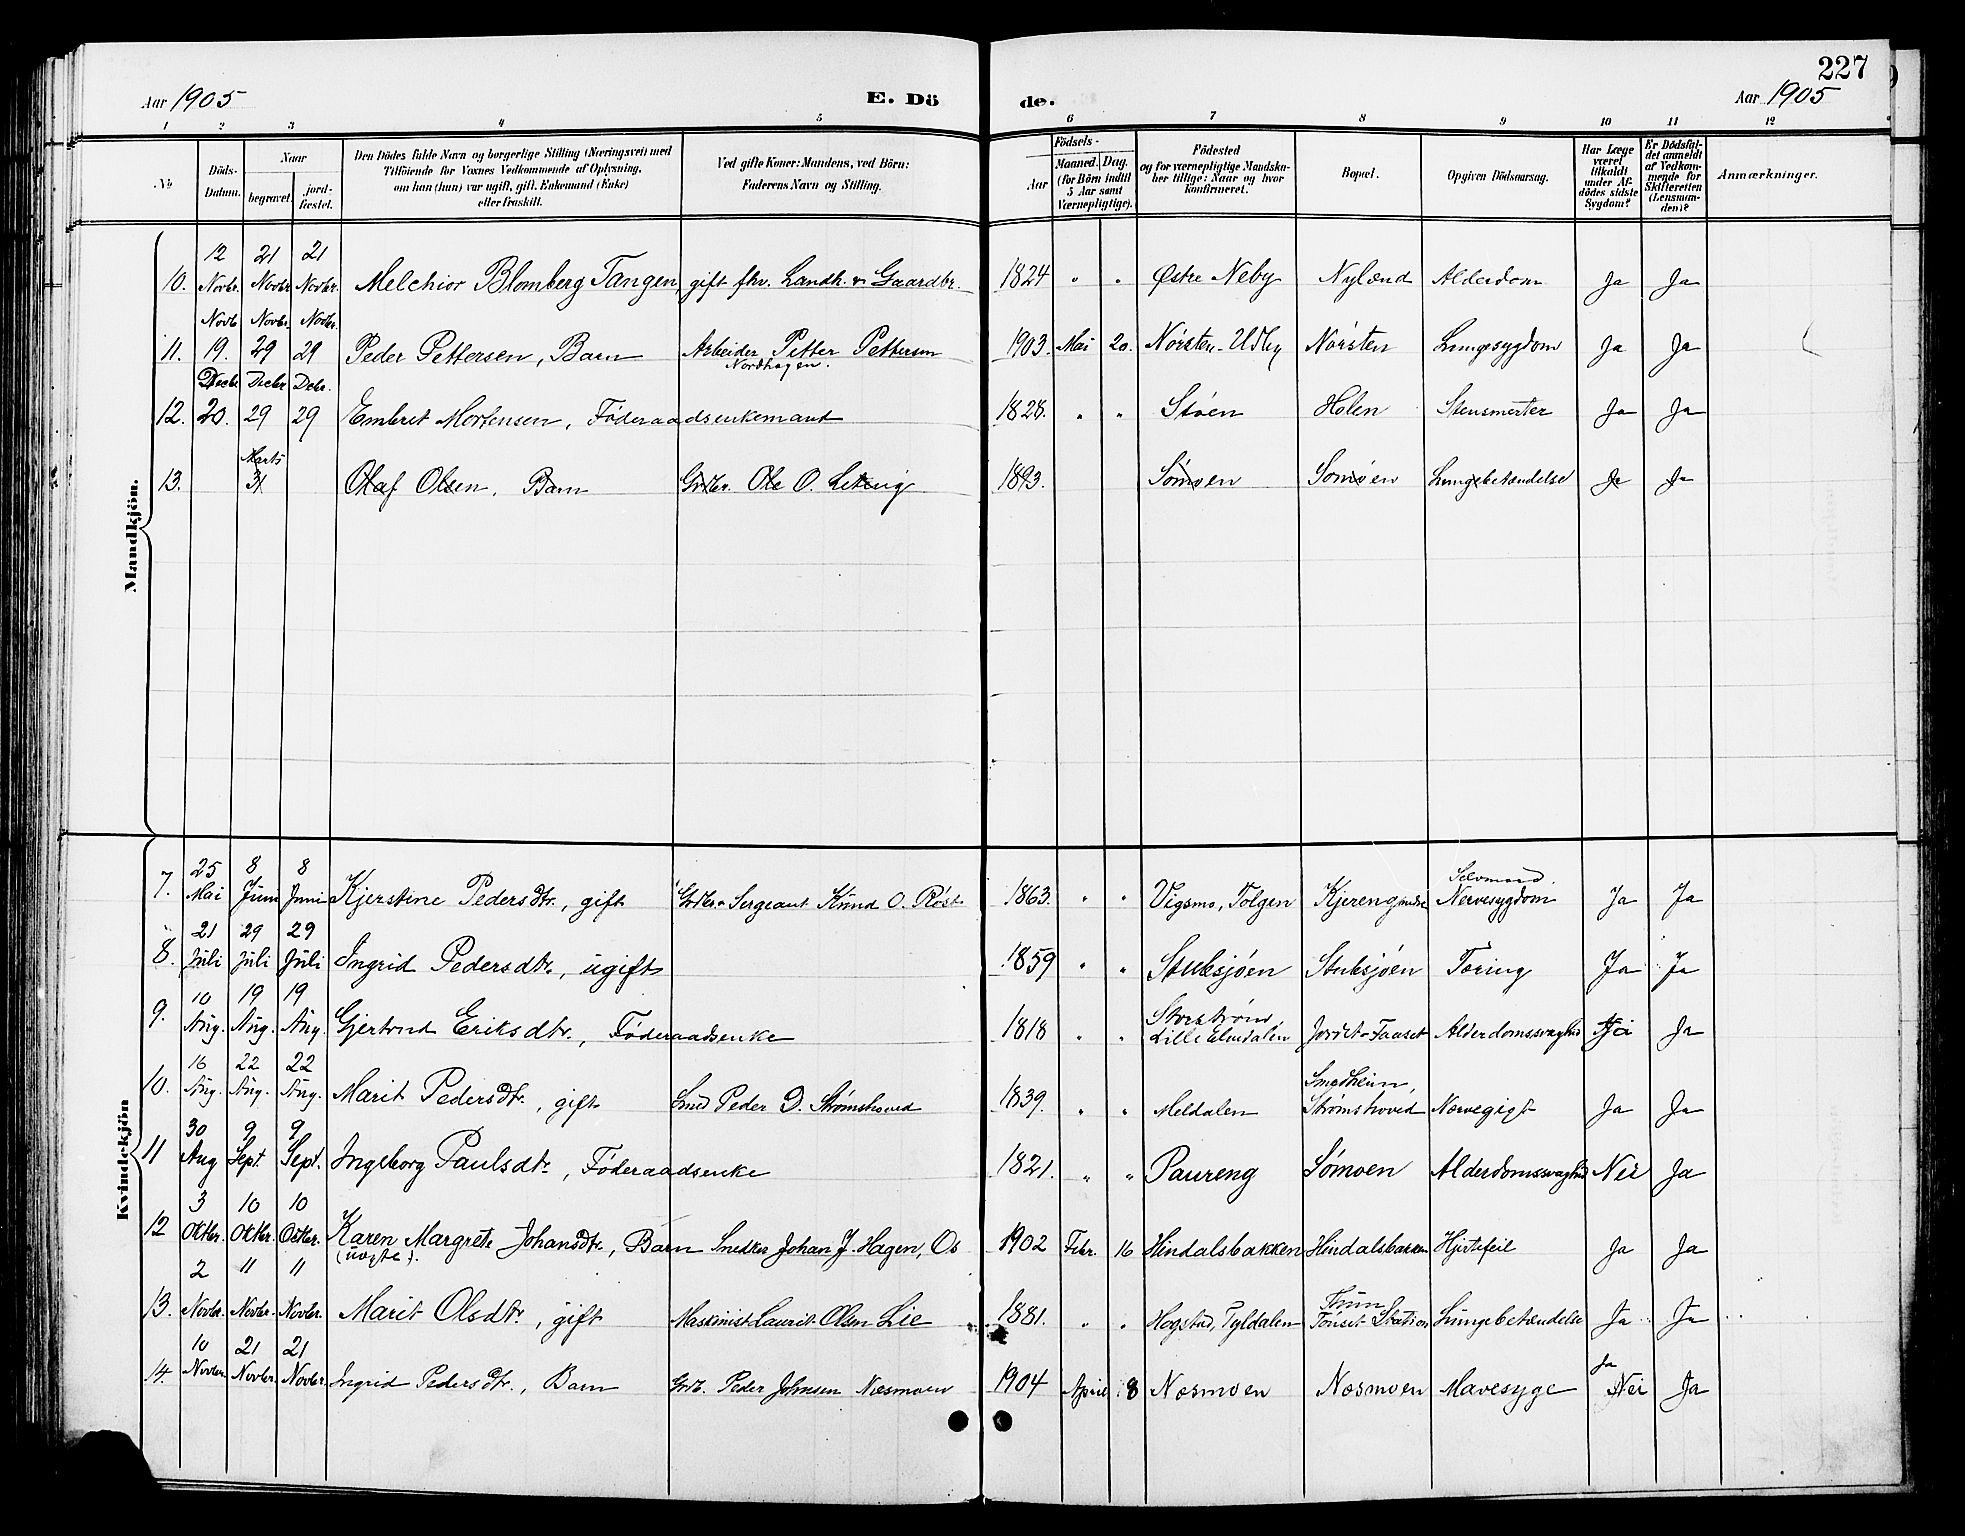 227
Aar 1905 E. Dö de. Aar 1905
1 2 3 4 5 6 7 8 9 10 11 12
No
Döds-Datum.
Naar
begravet.
jord-fæstet.
Den Dödes fulde Navn og borgerlige Stilling (Næringsvei) med
Tilföiende for Voxnes Vedkommende af Oplysning,
om han (hun) var ugift, gift, Enkemand (Enke)
eller fraskilt.
Ved gifte Koner: Mandens, ved Börn:
Faderens Navn og Stilling.
Födsels-
Aar
Maaned. Dag.
(for Börn indtil
5 Aar samt
Værnepligtige).
Födested
og for værnepligtige Mandska-
ber tillige: Naar og hvor
konfirmeret.
Bopæl.
Opgiven Dödsaarsag.
Har Læge
været
tilkaldt
under Af-
dödes sidste
Sygdom?
Er Dödsfal-
det anmeldt
af Vedkom-
mende for
Skifteretten
(Lensman-
den)?
Anmærkninger.
Mandkjön.
12 21 21
10. Novbr. Novbr. Novbr. Melchior Blomberg Tangen, gift fhv. Landh. & Gaardbr. 1824 " " Østre Neby Nylænd Alderdom Ja Ja
Novb. Novbr. Novbr.
11. 19. 29 29 Peder Pettersen, Barn Arbeider Petter Pettersen 1903. Mai 20. Nørsten-Udby Nørsten Lungesygdom Ja Ja
Nordhagen.
Decbr. Decbr. Debr.
12. 20. 29 29 Embret Mortensen, Føderaadsenkemand 1828. " " Støen Holen Stensmerter Ja Ja
Marts
13. 31 Olaf Olsen, Barn Grdbr. Ole O. 1893. Sømoen Sømoen Lungebetændelse Ja Ja
Kvindekjön
25 8 8 Selvmord.
7. Mai Juni Juni Kjerstine Pedersdtr., gift Grdbr. Sergeant Knud O. Røst 1863. " " Vigsmo, Tolgen Kjereng Nervesygdom Ja Ja
21 29 29
8. Juli Juli Juli Ingrid Pedersdtr., ugift 1859 " " Stubsjøen Stubsjøen Tæring Ja Ja
10 19 19 Storstrøm
9. Aug. Aug. Aug. Gjertrud Eriksdtr., Føderaadsenke 1818 " " Lille Elvedalen Jordet-Fauset Alderdomssvaghed Ja
16 22 22 Smedheim,
10. Aug. Aug. Aug. Marit Pedersdtr., gift Smed Peder D. Strømshoved 1839. " " Meldalen Strømshoved Nervegigt Ja Ja
30 9 9
11 Aug Sept. Sept. Ingeborg Paulsdtr., Føderaadsenke 1821. " " Paureng Sømoen Alderdomssvaghed Nei Ja
3 10 10
12 Oktbr. Oktbr. Octbr. Karen Margrete Johansdtr., Barn Snedker Johan J. Hagen, Os 1902 Febr. 16 Hindalsbakken Hindalsbakken Hjertefeil Ja Ja
(uægte).
2 11 11
13. Novbr. Novbr. Novbr. Marit Olsdtr., gift Maskinist Laurit Olsen Lie 1881. " " Hogstad, Tyldalen Tønset Station Lungebetændelse Ja Ja
10 21 21 Ja
14. Novbr. Novbr. Novbr. Ingrid Pedersdtr., Barn Grdb. Peder Johnsen Næsmoen 1904 April 18 Næsmoen Næsmoen Mavesyge Nei Ja